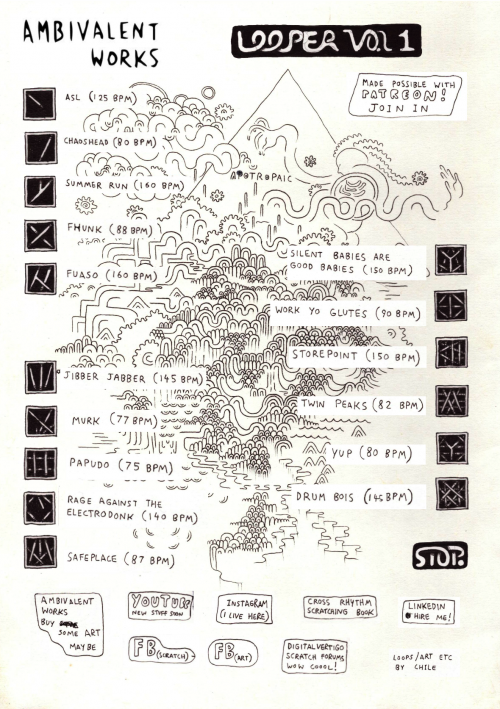 AMBIVALENT
WORKS
LOOPER VOL 1
MADE POSSIBLE WITH
PATREON!
JOIN IN
ASL (125 BPM)
CHAOSHEAD (80 BPM)
SUMMER RUN (160 BPM)
FHUNK (88 BPM)
FUASO (160 BPM)
APOTROPAIC
SILENT BABIES ARE
GOOD BABIES (150 BPM)
WORK YO GLUTES (90 BPM)
STOREPOINT (150 BPM)
JIBBER JABBER (145 BPM)
TWIN PEAKS (82 BPM)
MURK (77 BPM)
YUP (80 BPM)
PAPUDO (75 BPM)
DRUM BOIS (145 BPM)
RAGE AGAINST THE
ELECTRODONK (140 BPM)
SAFEPLACE (87 BPM)
STOP.
AMBIVALENT
WORKS
BUY
SOME ART
MAYBE
YOUTUBE
NEW STUFF SOON
INSTAGRAM
(I LIVE HERE)
CROSS RHYTHM
SCRATCHING BOOK
LINKEDIN
HIRE ME!
FB (SCRATCH)
FB (ART)
DIGITALVERTIGO
SCRATCH FORUMS
WOW COOOL!
LOOPS/ART ETC
BY CHILE